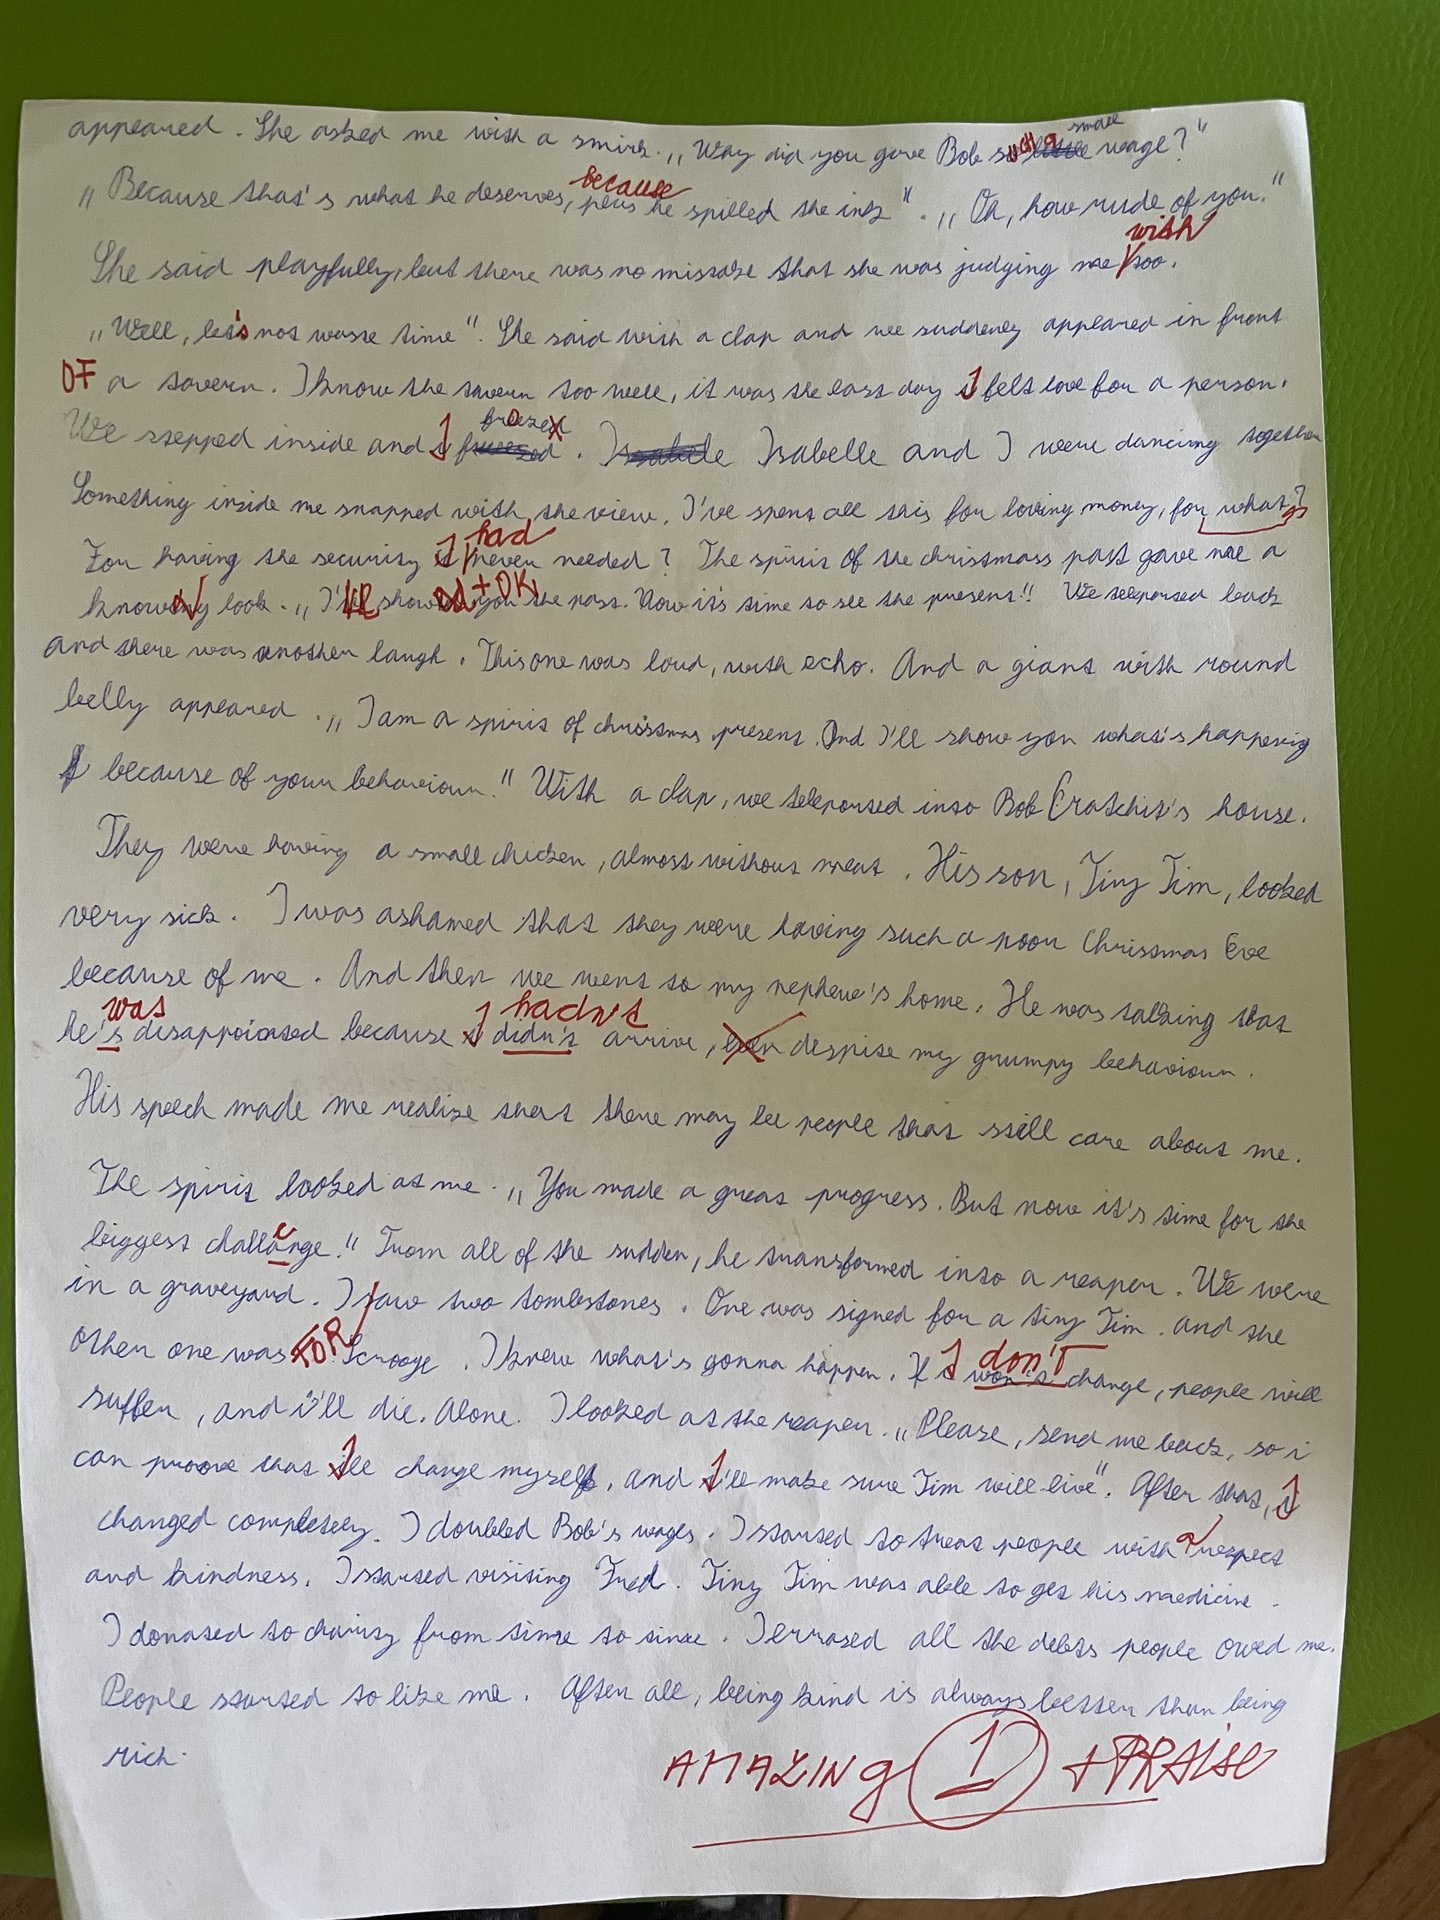 appeared. She asked me with a smirk. „Way did you gave Bob such a small wage?"
because
„Because that's what he deserves, plus he spilled the ink". „Oh, how rude of you."
with
She said playfully, but there was no mistake that she was judging me too.
„Well, let's not waste time". She said with a clap and we suddenly appeared in front
OF a tavern. I know the tavern too well, it was the last day I felt love for a person.
We stepped inside and I frozed. Isabelle and I were dancing together
Something inside me snapped with the view. I've spent all this for loving money, for what?
had
For having the security I never needed? The spirit of the christmass past gave me a
knowing look. „I'll show you the past. Now it's time to see the present!" We teleported back
and there was another laugh. This one was loud, with echo. And a giant with round
belly appeared. „I am a spirit of christmas present. And I'll show you what's happenig
because of your behaviour." With a clap, we teleported into Bob Cratchit's house.
They were having a small chicken, almost without meat. His son, Tiny Tim, looked
very sick. I was ashamed that they were having such a poor Christmas Eve
because of me. And then we went to my nephew's home. He was talking that
was I hadn't
he's disappointed because didn't arrive, even despise my grumpy behaviour.
His speech made me realize that there may be people that still care about me.
The spirit looked at me. „You made a great progress. But now it's time for the
biggest challenge." From all of the sudden, he transformed into a reaper. We were
in a graveyard. I saw two tombstones. One was signed for a tiny Tim. and the
other one was FOR Scrooge. I knew what's gonna happen. If I won't don't change, people will
suffer, and i'll die. Alone. I looked at the reaper. „Please, send me back, so i
can proove that I'll change myself, and I'll make sure Tim will live". After that, I
changed completely. I doubled Bob's wages. I started to treat people with a respect
and kindness. I started visiting Fred. Tiny Tim was able to get his medicine.
I donated to charity from time to time. I errased all the debts people owed me.
People started to like me. After all, being kind is always better than being
rich.
AMAZING 1 + PRAISE